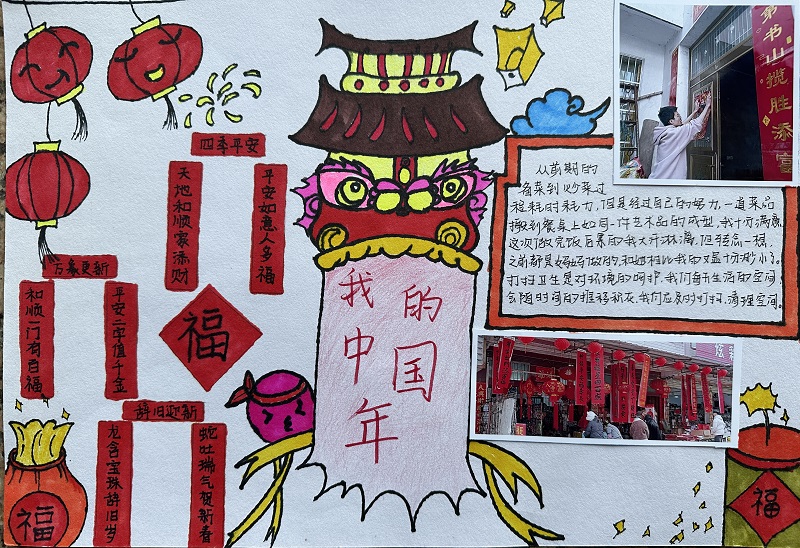 四季平安
天地和顺家添财
平安如意人多福
万象更新
和顺一门有百福
平安二字值千金
福
辞旧迎新
龙含宝珠辞旧岁
蛇吐瑞气贺新春
福
我的中国年
第书山揽胜添富
从前期的
备菜到炒菜过
程耗时耗力,但是经过自己的努力,一道菜品
搬到餐桌上如同一件艺术品的成型,我十分满意
这次做完饭后累的我大汗淋漓,但转念一想,
之前都是妈妈做的,和妈妈比我的又显十分渺小了。
打扫卫生是对环境的呵护,我们每天生活的空间
会随时间的推移积灰,我们应及时打扫,清理空间。
福